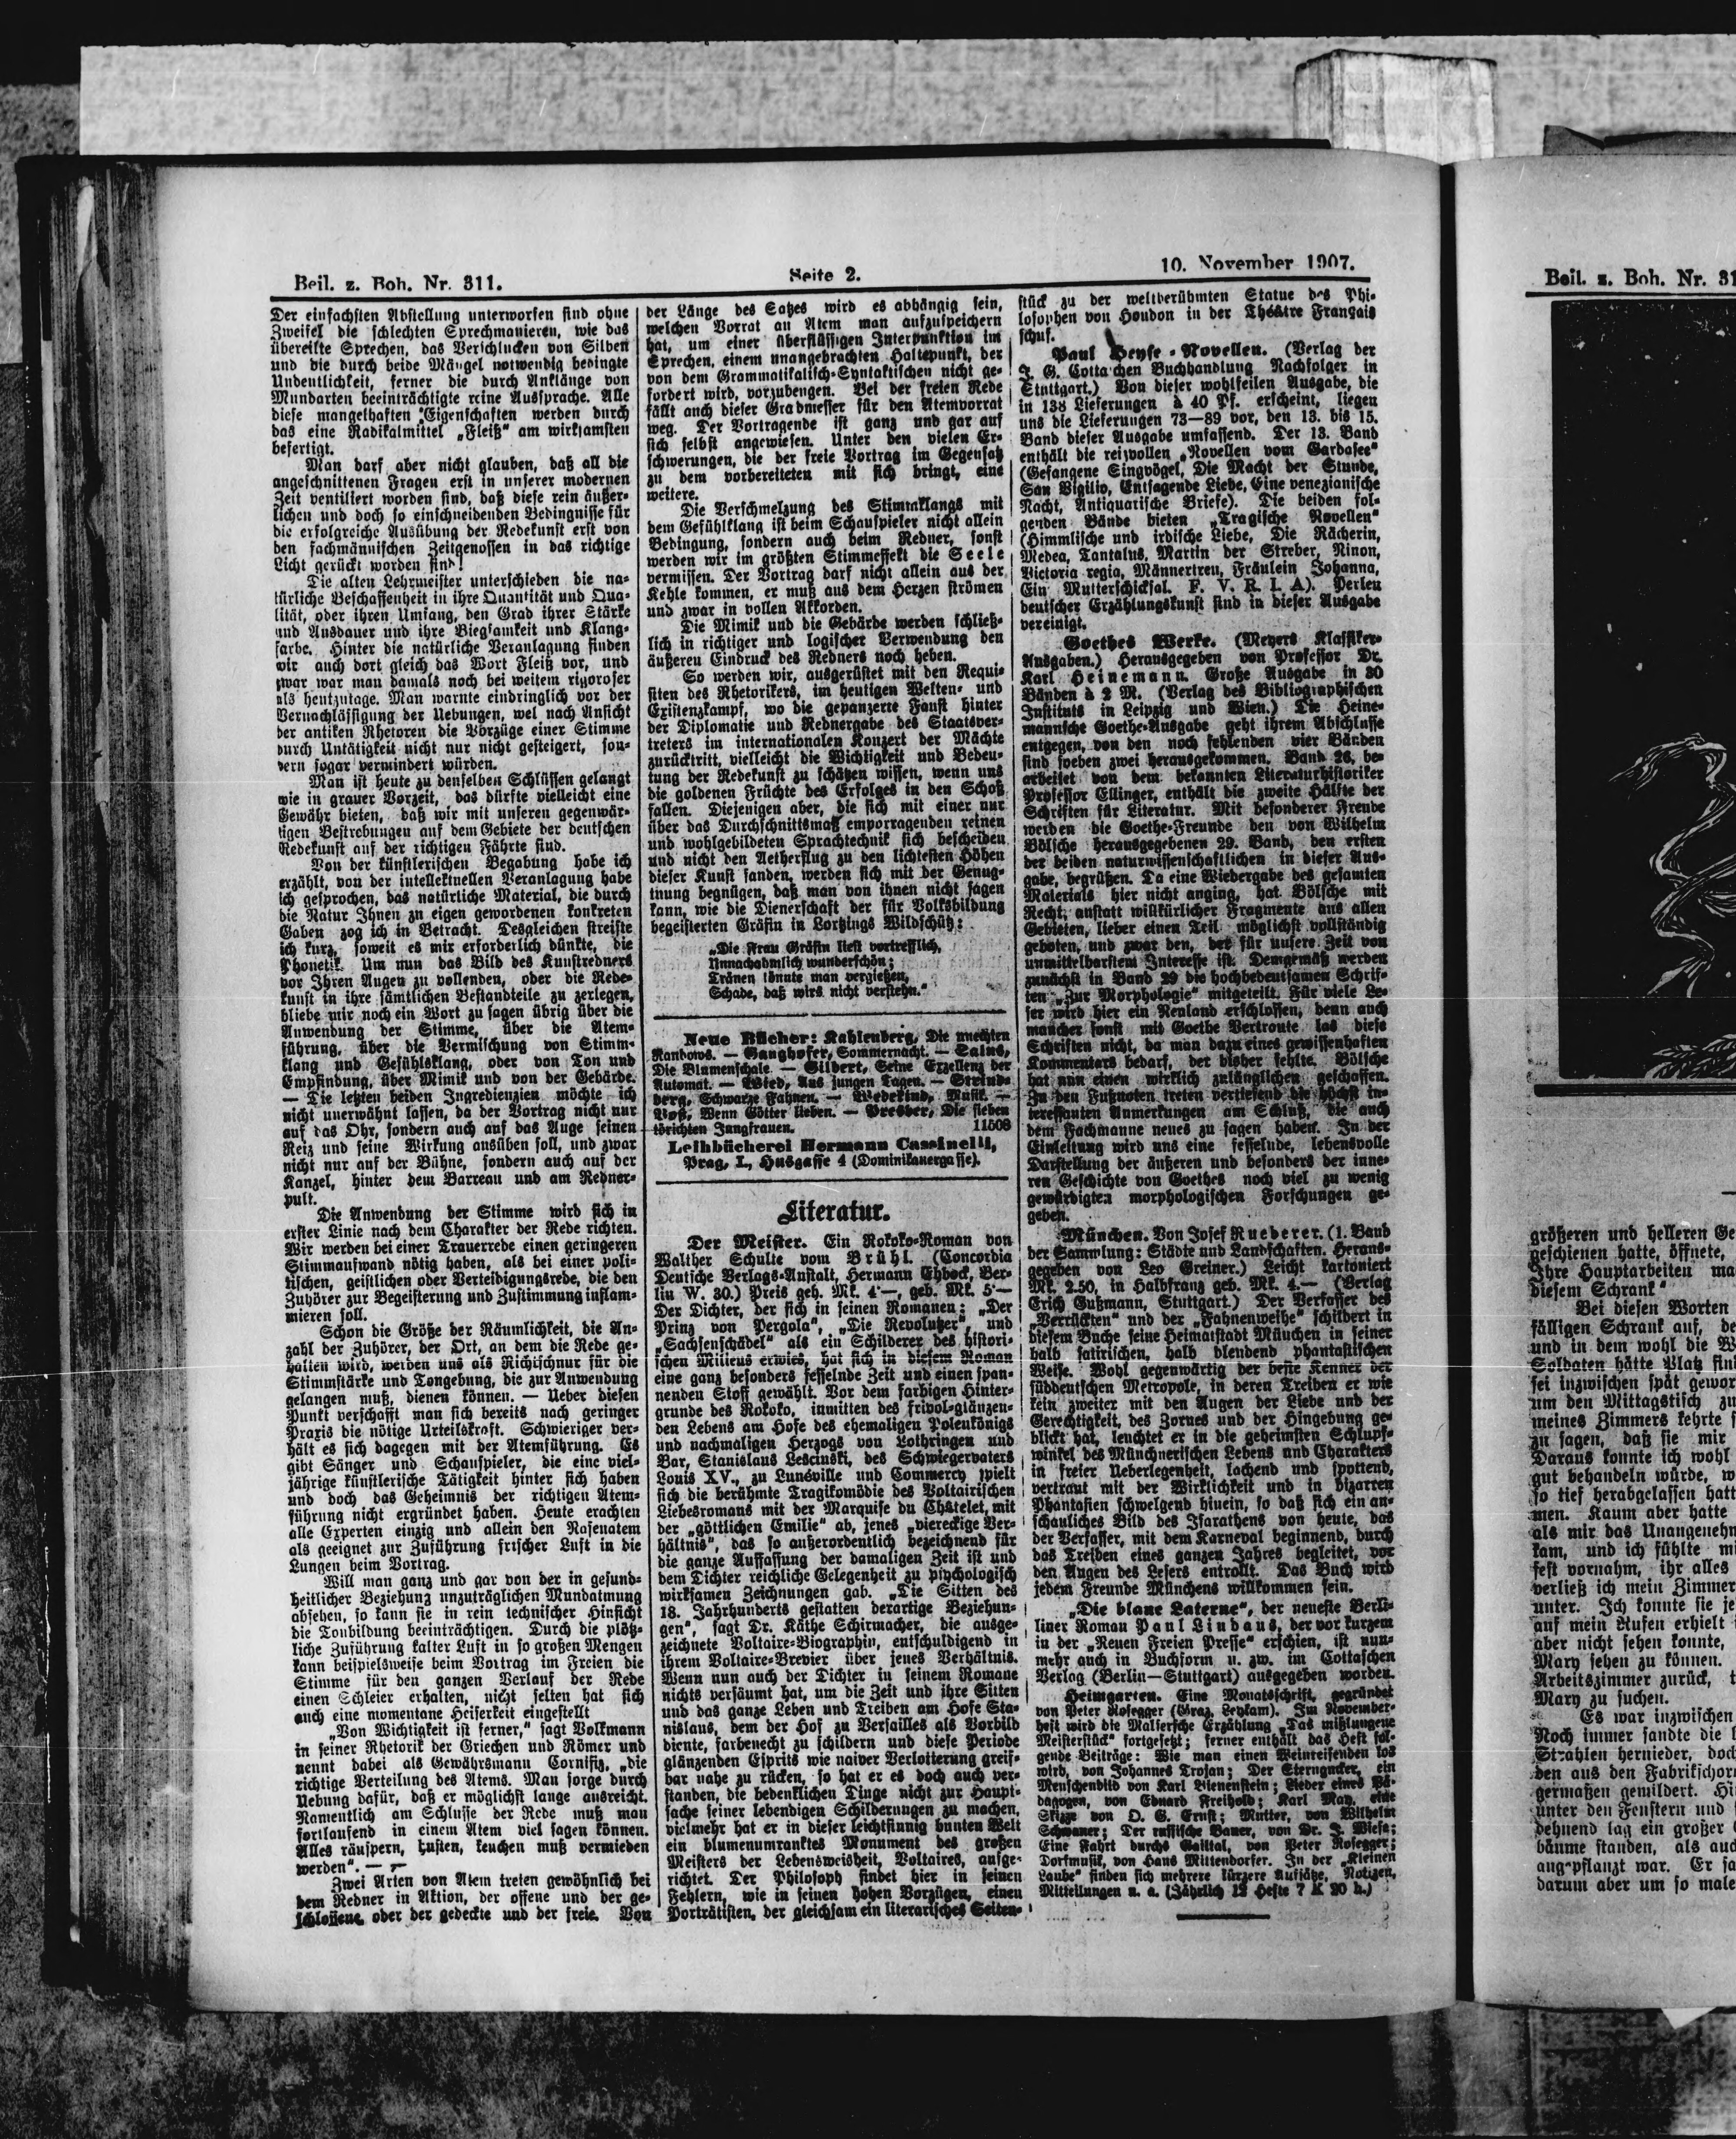 Beil. z. Boh. Nr. 311.
Seite 2.
10. November 1907.
Der einfachsten Abstellung unterworfen sind ohne
Zweifel die schlechten Sprechmanieren, wie das
übereilte Sprechen, das Verschlucken von Silben
und die durch beide Mängel notwendig bedingte
Undeutlichkeit, ferner die durch Anklänge von
Mundarten beeinträchtigte reine Aussprache. Alle
diese mangelhaften Eigenschaften werden durch
das eine Radikalmittel „Fleiß“ am wirksamsten
befertigt.
Man darf aber nicht glauben, daß all die
angeschnittenen Fragen erst in unserer modernen
Zeit ventiliert worden sind, daß diese rein äußer-
lichen und doch so einschneidenden Bedingnisse für
die erfolgreiche Ausübung der Redekunst erst von
den fachmännischen Zeitgenossen in das richtige
Licht gerückt worden sind!
Die alten Lehrmeister unterschieden die na-
türliche Beschaffenheit in ihre Quantität und Qua-
lität, oder ihren Umfang, den Grad ihrer Stärke
und Ausdauer und ihre Biegsamkeit und Klang-
farbe. Hinter die natürliche Veranlagung finden
wir auch dort gleich das Wort Fleiß vor, und
zwar war man damals noch bei weitem rigoroser
als heutzutage. Man warnte eindringlich vor der
Vernachlässigung der Uebungen, wel nach Ansicht
der antiken Rhetoren die Vorzüge einer Stimme
durch Untätigkeit nicht nur nicht gesteigert, son-
dern sogar vermindert würden.
Man ist heute zu denselben Schlüssen gelangt
wie in grauer Vorzeit, das dürfte vielleicht eine
Gewähr bieten, daß wir mit unseren gegenwär-
tigen Bestrebungen auf dem Gebiete der deutschen
Redekunst auf der richtigen Fährte sind.
Von der künstlerischen Begabung habe ich
erzählt, von der intellektuellen Veranlagung habe
ich gesprochen, das natürliche Material, die durch
die Natur Ihnen zu eigen gewordenen konkreten
Gaben zog ich in Betracht. Desgleichen streifte
ich kurz, soweit es mir erforderlich dünkte, die
Phonetik. Um nun das Bild des Kunstredners
vor Ihren Augen zu vollenden, oder die Rede-
kunst in ihre sämtlichen Bestandteile zu zerlegen,
bliebe mir noch ein Wort zu sagen übrig über die
Anwendung der Stimme, über die Atem-
führung, über die Vermischung von Stimm-
klang und Gefühlsklang, oder von Ton und
Empfindung, über Mimik und von der Gebärde.
— Die letzten beiden Ingredienzien möchte ich
nicht unerwähnt lassen, da der Vortrag nicht nur
auf das Ohr, sondern auch auf das Auge seinen
Reiz und seine Wirkung ausüben soll, und zwar
nicht nur auf der Bühne, sondern auch auf der
Kanzel, hinter dem Barreau und am Redner-
pult.
Die Anwendung der Stimme wird sich in
erster Linie nach dem Charakter der Rede richten.
Wir werden bei einer Trauerrede einen geringeren
Stimmaufwand nötig haben, als bei einer poli-
tischen, geistlichen oder Verteidigungsrede, die den
Zuhörer zur Begeisterung und Zustimmung inflam-
mieren soll.
Schon die Größe der Räumlichkeit, die An-
zahl der Zuhörer, der Ort, an dem die Rede ge-
halten wird, werden uns als Richtschnur für die
Stimmstärke und Tongebung, die zur Anwendung
gelangen muß, dienen können. — Ueber diesen
Punkt verschafft man sich bereits nach geringer
Praxis die nötige Urteilskraft. Schwieriger ver-
hält es sich dagegen mit der Atemführung. Es
gibt Sänger und Schauspieler, die eine viel-
jährige künstlerische Tätigkeit hinter sich haben
und doch das Geheimnis der richtigen Atem-
führung nicht ergründet haben. Heute erachten
alle Experten einzig und allein den Nasenatem
als geeignet zur Zuführung frischer Luft in die
Lungen beim Vortrag.
Will man ganz und gar von der in gesund-
heitlicher Beziehung unzuträglichen Mundatmung
absehen, so kann sie in rein technischer Hinsicht
die Tonbildung beeinträchtigen. Durch die plötz-
liche Zuführung kalter Luft in so großen Mengen
kann beispielsweise beim Vortrag im Freien die
Stimme für den ganzen Verlauf der Rede
einen Schleier erhalten, nicht selten hat sich
auch eine momentane Heiserkeit eingestellt
„Von Wichtigkeit ist ferner,“ sagt Volkmann
in seiner Rhetorik der Griechen und Römer und
nennt dabei als Gewährsmann Cornifiz, „die
richtige Verteilung des Atems. Man sorge durch
Uebung dafür, daß er möglichst lange ausreicht.
Namentlich am Schlusse der Rede muß man
fortlaufend in einem Atem viel sagen können.
Alles räuspern, husten, keuchen muß vermieden
werden“. — —
Zwei Arten von Atem treten gewöhnlich bei
dem Redner in Aktion, der offene und der ge-
schlossene oder der gedeckte und der freie. Von
der Länge des Satzes wird es abhängig sein,
welchen Vorrat an Atem man aufzuspeichern
hat, um einer überflüssigen Interpunktion im
Sprechen, einem unangebrachten Haltepunkt, der
von dem Grammatikalisch-Syntaktischen nicht ge-
fordert wird, vorzubeugen. Bei der freien Rede
fällt auch dieser Gradmesser für den Atemvorrat
weg. Der Vortragende ist ganz und gar auf
sich selbst angewiesen. Unter den vielen Er-
schwerungen, die der freie Vortrag im Gegensatz
zu dem vorbereiteten mit sich bringt, eine
weitere.
Die Verschmelzung des Stimmklangs mit
dem Gefühlklang ist beim Schauspieler nicht allein
Bedingung, sondern auch beim Redner, sonst
werden wir im größten Stimmeffekt die Seele
vermissen. Der Vortrag darf nicht allein aus der
Kehle kommen, er muß aus dem Herzen strömen
und zwar in vollen Akkorden.
Die Mimik und die Gebärde werden schließ-
lich in richtiger und logischer Verwendung den
äußeren Eindruck des Redners noch heben.
So werden wir, ausgerüstet mit den Requi-
siten des Rhetorikers, im heutigen Welten- und
Existenzkampf, wo die gepanzerte Faust hinter
der Diplomatie und Rednergabe des Staatsver-
treters im internationalen Konzert der Mächte
zurücktritt, vielleicht die Wichtigkeit und Bedeu-
tung der Redekunst zu schätzen wissen, wenn uns
die goldenen Früchte des Erfolges in den Schoß
fallen. Diejenigen aber, die sich mit einer nur
über das Durchschnittsmaß emporragenden reinen
und wohlgebildeten Sprachtechnik sich bescheiden
und nicht den Aetherflug zu den lichtesten Höhen
dieser Kunst fanden, werden sich mit der Genug-
tnung begnügen, daß man von ihnen nicht sagen
kann, wie die Dienerschaft der für Volksbildung
begeisterten Gräfin in Lortzings Wildschütz:
„Die Frau Gräfin liest vortrefflich,
Unnachahmlich wunderschön;
Tränen könnte man vergießen,
Schade, daß wirs nicht verstehn.“
Neue Bücher: Kahlenberg, Die unechten
Randows. — Ganghofer, Sommernacht. — Salus,
Die Blumenschale. — Gilbert, Seine Exzellenz der
Automat. — Wied, Aus jungen Tagen. — Strind-
berg, Schwarze Fahnen. — Wedekind, Musik. —
Voß, Wenn Götter lieben. — Presber, Die sieben
törichten Jungfrauen. 11506
Leihbücherei Hermann Cassinelli,
Prag, I., Husgasse 4 (Dominikanergasse).
Literatur.
Der Meister. Ein Rokoko-Roman von
Walther Schulte vom Brühl. (Concordia
Deutsche Verlags-Anstalt, Hermann Ehbock, Ber-
lin W. 30.) Preis geh. Mk. 4·—, geb. Mk. 5·—
Der Dichter, der sich in seinen Romanen: „Der
Prinz von Pergola“, „Die Revolutzer“, und
„Sachsenschädel“ als ein Schilderer des histori-
schen Milieus erwies, hat sich in diesem Roman
eine ganz besonders fesselnde Zeit und einen span-
nenden Stoff gewählt. Vor dem farbigen Hinter-
grunde des Rokoko, inmitten des frivol-glänzen-
den Lebens am Hofe des ehemaligen Polenkönigs
und nachmaligen Herzogs von Lothringen und
Bar, Stanislaus Lescinski, des Schwiegervaters
Louis XV., zu Lunéville und Commercy spielt
sich die berühmte Tragikomödie des Voltairischen
Liebesromans mit der Marquise du Châtelet, mit
der „göttlichen Emilie“ ab, jenes „viereckige Ver-
hältnis“, das so außerordentlich bezeichnend für
die ganze Auffassung der damaligen Zeit ist und
dem Dichter reichliche Gelegenheit zu psychologisch
wirksamen Zeichnungen gab. „Die Sitten des
18. Jahrhunderts gestatten derartige Beziehun-
gen“, sagt Dr. Käthe Schirmacher, die ausge-
zeichnete Voltaire-Biographin, entschuldigend in
ihrem Voltaire-Brevier über jenes Verhältnis.
Wenn nun auch der Dichter in seinem Romane
nichts versäumt hat, um die Zeit und ihre Sitten
und das ganze Leben und Treiben am Hofe Sta-
nislaus, dem der Hof zu Versailles als Vorbild
diente, farbenecht zu schildern und diese Periode
glänzenden Esprits wie naiver Verlotterung greif-
bar nahe zu rücken, so hat er es doch auch ver-
standen, die bedenklichen Dinge nicht zur Haupt-
sache seiner lebendigen Schilderungen zu machen,
vielmehr hat er in dieser leichtsinnig bunten Welt
ein blumenumranktes Monument des großen
Meisters der Lebensweisheit, Voltaires, aufge-
richtet. Der Philosoph findet hier in seinen
Fehlern, wie in seinen hohen Vorzügen, einen
Porträtisten, der gleichsam ein literarisches Seiten-
stück zu der weltberühmten Statue des Phi-
losophen von Houdon in der Théâtre Français
schuf.
Paul Heyse-Novellen. (Verlag der
J. G. Cotta'chen Buchhandlung Nachfolger in
Stuttgart.) Von dieser wohlfeilen Ausgabe, die
in 138 Lieferungen à 40 Pf. erscheint, liegen
uns die Lieferungen 73—89 vor, den 13. bis 15.
Band dieser Ausgabe umfassend. Der 13. Band
enthält die reizvollen „Novellen vom Gardasee“
(Gefangene Singvögel, Die Macht der Stunde,
San Vigilio, Entsagende Liebe, Eine venezianische
Nacht, Antiquarische Briefe). Die beiden fol-
genden Bände bieten „Tragische Novellen“
(Himmlische und irdische Liebe, Die Rächerin,
Medea, Tantalus, Martin der Streber, Ninon,
Victoria regia, Männertreu, Fräulein Johanna,
Ein Mutterschicksal. F. V. R. I. A). Perlen
deutscher Erzählungskunst sind in dieser Ausgabe
vereinigt.
Goethes Werke. (Meyers Klassiker-
Ausgaben.) Herausgegeben von Professor Dr.
Karl Heinemann. Große Ausgabe in 30
Bänden à 2 M. (Verlag des Bibliographischen
Instituts in Leipzig und Wien.) Die Heine-
mannsche Goethe-Ausgabe geht ihrem Abschlusse
entgegen, von den noch fehlenden vier Bänden
sind soeben zwei herausgekommen. Band 26, be-
arbeitet von dem bekannten Literaturhistoriker
Professor Ellinger, enthält die zweite Hälfte der
Schriften für Literatur. Mit besonderer Freude
werden die Goethe-Freunde den von Wilhelm
Bölsche herausgegebenen 29. Band, den ersten
der beiden naturwissenschaftlichen in dieser Aus-
gabe, begrüßen. Da eine Wiedergabe des gesamten
Materials hier nicht anging, hat Bölsche mit
Recht, anstatt willkürlicher Fragmente aus allen
Gebieten, lieber einen Teil möglichst vollständig
geboten, und zwar den, der für unsere Zeit von
unmittelbarstem Interesse ist. Demgemäß werden
zunächst in Band 29 die hochbedeutsamen Schrif-
ten „Zur Morphologie“ mitgeteilt. Für viele Le-
ser wird hier ein Neuland erschlossen, denn auch
mancher sonst mit Goethe Vertraute las diese
Schriften nicht, da man dazu eines gewissenhaften
Kommentars bedarf, der bisher fehlte. Bölsche
hat nun einen wirklich zulänglichen geschaffen.
Zu den Fußnoten treten vertiefend die höchst in-
teressanten Anmerkungen am Schluß, die auch
dem Fachmanne neues zu sagen haben. In der
Einleitung wird uns eine fesselnde, lebensvolle
Darstellung der äußeren und besonders der inne-
ren Geschichte von Goethes noch viel zu wenig
gewürdigten morphologischen Forschungen ge-
geben.
München. Von Josef Ruederer. (1. Band
der Sammlung: Städte und Landschaften. Heraus-
gegeben von Leo Greiner.) Leicht kartoniert
Mk. 2.50, in Halbfranz geb. Mk. 4.— (Verlag
Erich Gußmann, Stuttgart.) Der Verfasser des
„Verrückten“ und der „Fahnenweihe“ schildert in
diesem Buche seine Heimatstadt München in seiner
halb satirischen, halb blendend phantastischen
Weise. Wohl gegenwärtig der beste Kenner der
süddeutschen Metropole, in deren Treiben er wie
kein zweiter mit den Augen der Liebe und der
Gerechtigkeit, des Zornes und der Hingebung ge-
blickt hat, leuchtet er in die geheimsten Schlupf-
winkel des Münchnerischen Lebens und Charakters
in freier Ueberlegenheit, lachend und spottend,
vertraut mit der Wirklichkeit und in bizarren
Phantasien schwelgend hinein, so daß sich ein an-
schauliches Bild des Isarathens von heute, das
der Verfasser, mit dem Karneval beginnend, durch
das Treiben eines ganzen Jahres begleitet, vor
den Augen des Lesers entrollt. Das Buch wird
jedem Freunde Münchens willkommen sein.
„Die blaue Laterne“, der neueste Berli-
liner Roman Paul Lindaus, der vor kurzem
in der „Neuen Freien Presse“ erschien, ist nun-
mehr auch in Buchform u. zw. im Cottaschen
Verlag (Berlin—Stuttgart) ausgegeben worden.
Heimgarten. Eine Monatsschrift, gegründet
von Peter Rosegger (Graz, Leykam). Im November-
heft wird die Malsersche Erzählung „Das mißlungene
Meisterstück“ fortgesetzt; ferner enthält das Heft fol-
gende Beiträge: Wie man einen Weinreisenden los
wird, von Johannes Trojan; Der Sterngucker, ein
Menschenbild von Karl Bienenstein; Lieder eines Pä-
dagogen, von Eduard Freihold; Karl May, eine
Skizze von O. G. Ernst; Mutter, von Wilhelm
Schwaner; Der russische Bauer, von Dr. J. Wiese;
Eine Fahrt durchs Gailtal, von Peter Rosegger;
Dorfmusik, von Hans Mittendorfer. In der „Kleinen
Laube“ finden sich mehrere kürzere Aufsätze, Notizen,
Mitteilungen u. a. (Jährlich 12 Hefte 7 K 20 h.)
Beil. z. Boh. Nr. 31
größeren und helleren Ge
geschienen hatte, öffnete,
Ihre Hauptarbeiten ma
diesem Schrank“
Bei diesen Worten
fälligen Schrank auf, de
und in dem wohl die W
Soldaten hätte Platz fin
sei inzwischen spät gewor
um den Mittagstisch zu
meines Zimmers kehrte s
zu sagen, daß sie mir
Daraus konnte ich wohl
gut behandeln würde, w
so tief herabgelassen hatt
men. Kaum aber hatte
als mir das Unangenehm
kam, und ich fühlte mi
fest vornahm, ihr alles
verließ ich mein Zimmer
unter. Ich konnte sie je
auf mein Rufen erhielt
aber nicht sehen konnte,
Mary sehen zu können.
Arbeitszimmer zurück, t
Mary zu suchen.
Es war inzwischen
Noch immer sandte die
Strahlen hernieder, doch
den aus den Fabrikschorn
germaßen gemildert. Hi
unter den Fenstern und
dehnend lag ein großer
bäume standen, als auch
angepflanzt war. Er sa
darum aber um so male